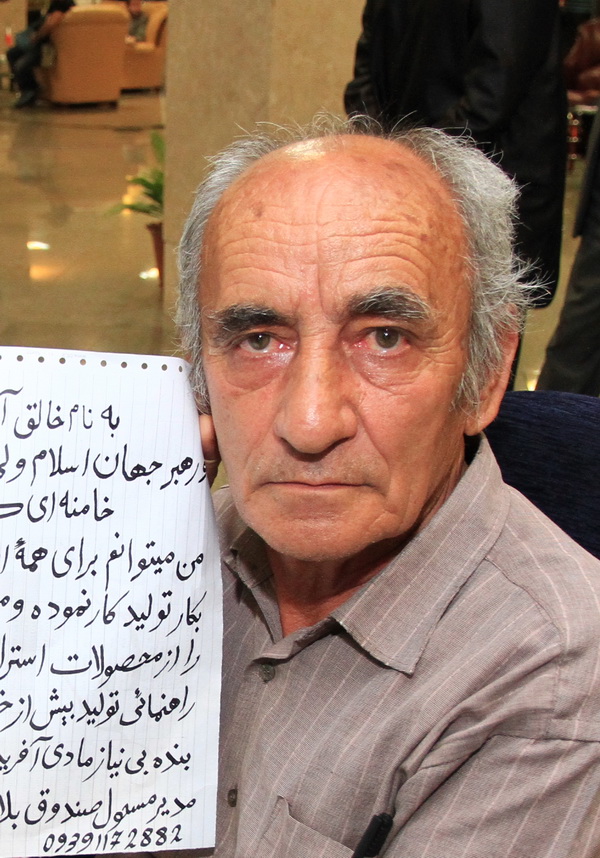 به نام خالق
ورهبر جهان اسلام ولی
خامنه‌ای
من میتوانم برای همهٔ
بکار تولید کار نموده و
را از محصولات استرا
راهنمائی تولید بیش از
بنده بی نیاز مادی آفرید
مدیر مسئول صندوق بلا
09391172882